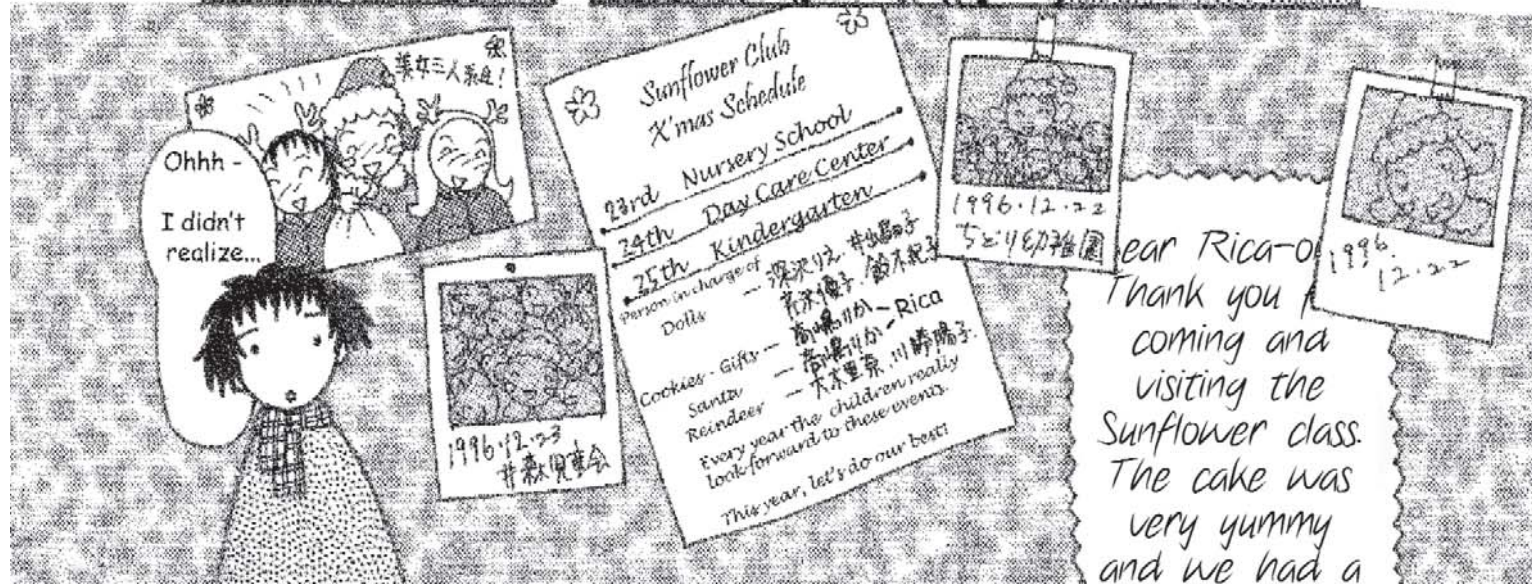 美女三人
Ohhh -
I didn't
realize...
1996.12.23
Sunflower Club
X'mas Schedule
23rd Nursery School
24th Day Care Center
25th Kindergarten
Person in charge of
Dolls
Cookies - Gifts — Rica
Santa
Reindeer
Every year the children really
look forward to these events.
This year, let's do our best!
1996.12.22
ちどり幼稚園
1996.
12.22
ear Rica-o
Thank you
coming and
visiting the
Sunflower class.
The cake was
very yummy
and we had a